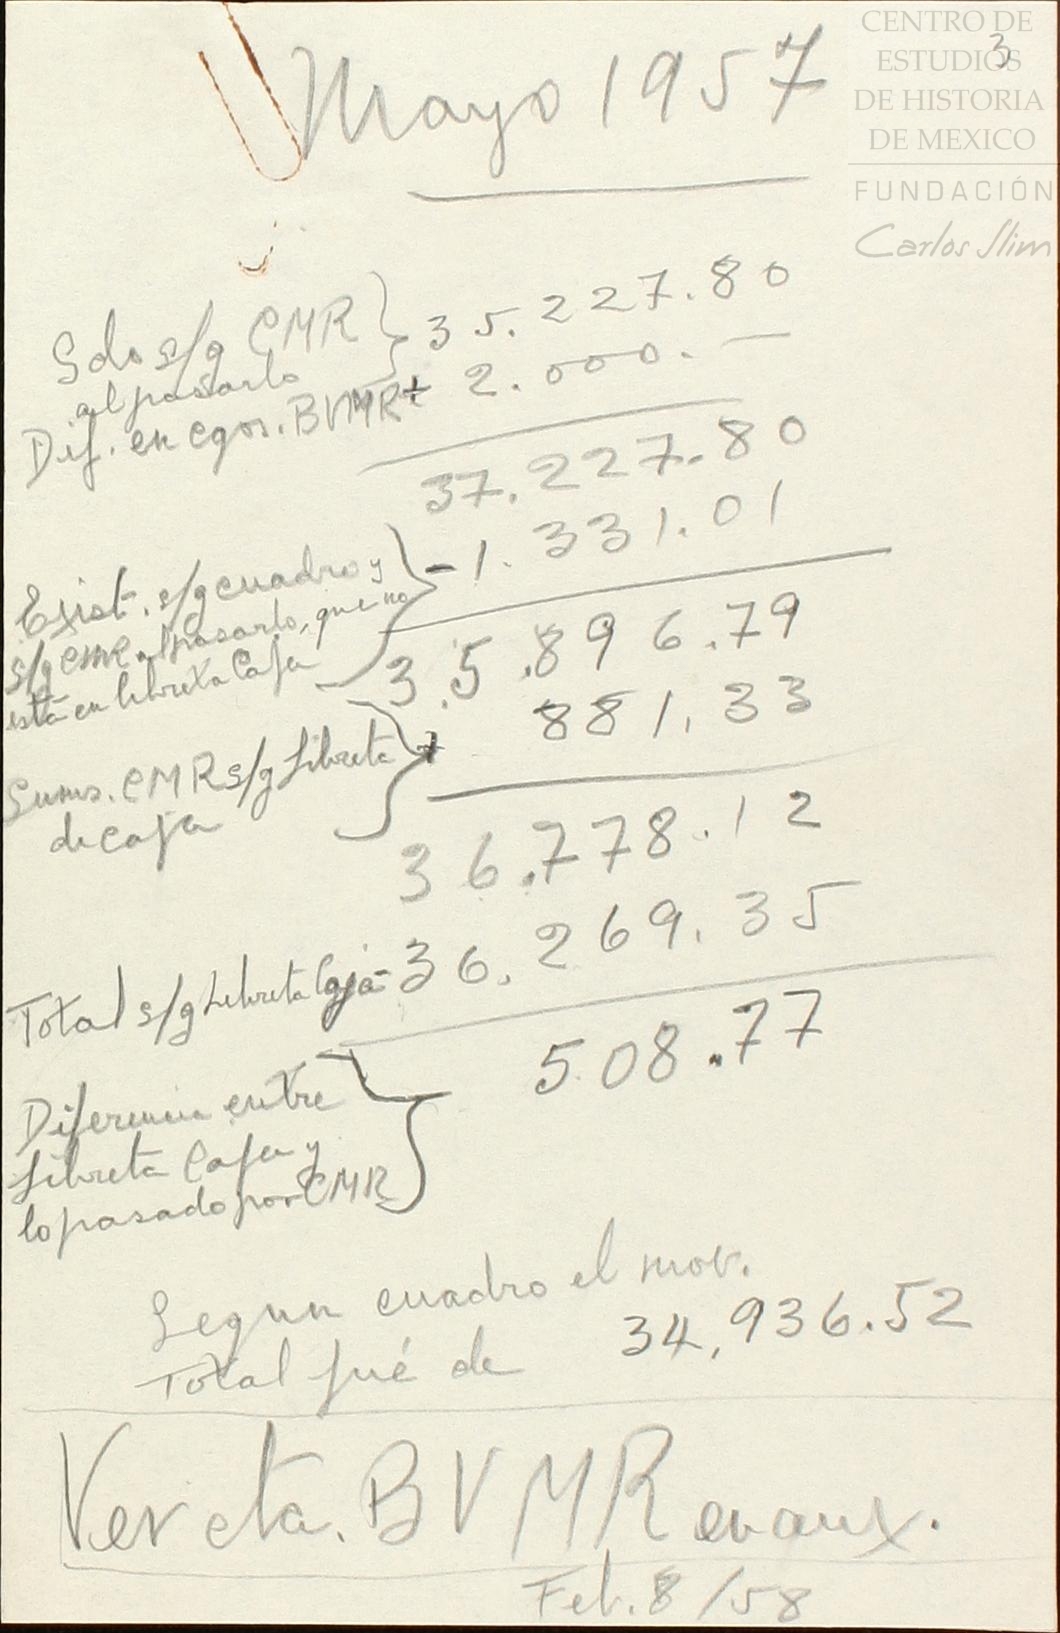 CENTRO DE
ESTUDIOS
DE HISTORIA
DE MEXICO
FUNDACIÓN
Carlos Slim
3
Mayo 1957
Sdo s/g CMR 35.227.80
al pasarlo
Dif. en egos. BVMR + 2.000.—
37.227.80
Exist. s/g cuadro y - 1.331.01
s/g CMR al pasarlo, que no
está en libreta Caja
35.896.79
Sums. CMR s/g Libreta + 881.33
de caja
36.778.12
Total s/g Libreta Caja - 36.269.35
508.77
Diferencia entre
Libreta Caja y
lo pasado por CMR
Segun cuadro el mov.
Total fué de 34,936.52
Ver cta. BVMR en aux.
Feb. 8/58